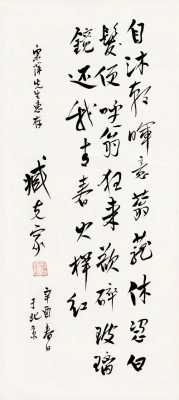 自沐朝暉意蓊蘢休恁白
髮便呼翁狂来欲碎玻璃
鏡还我青春火样红
先生惠存
臧克家
辛酉春日
于北京